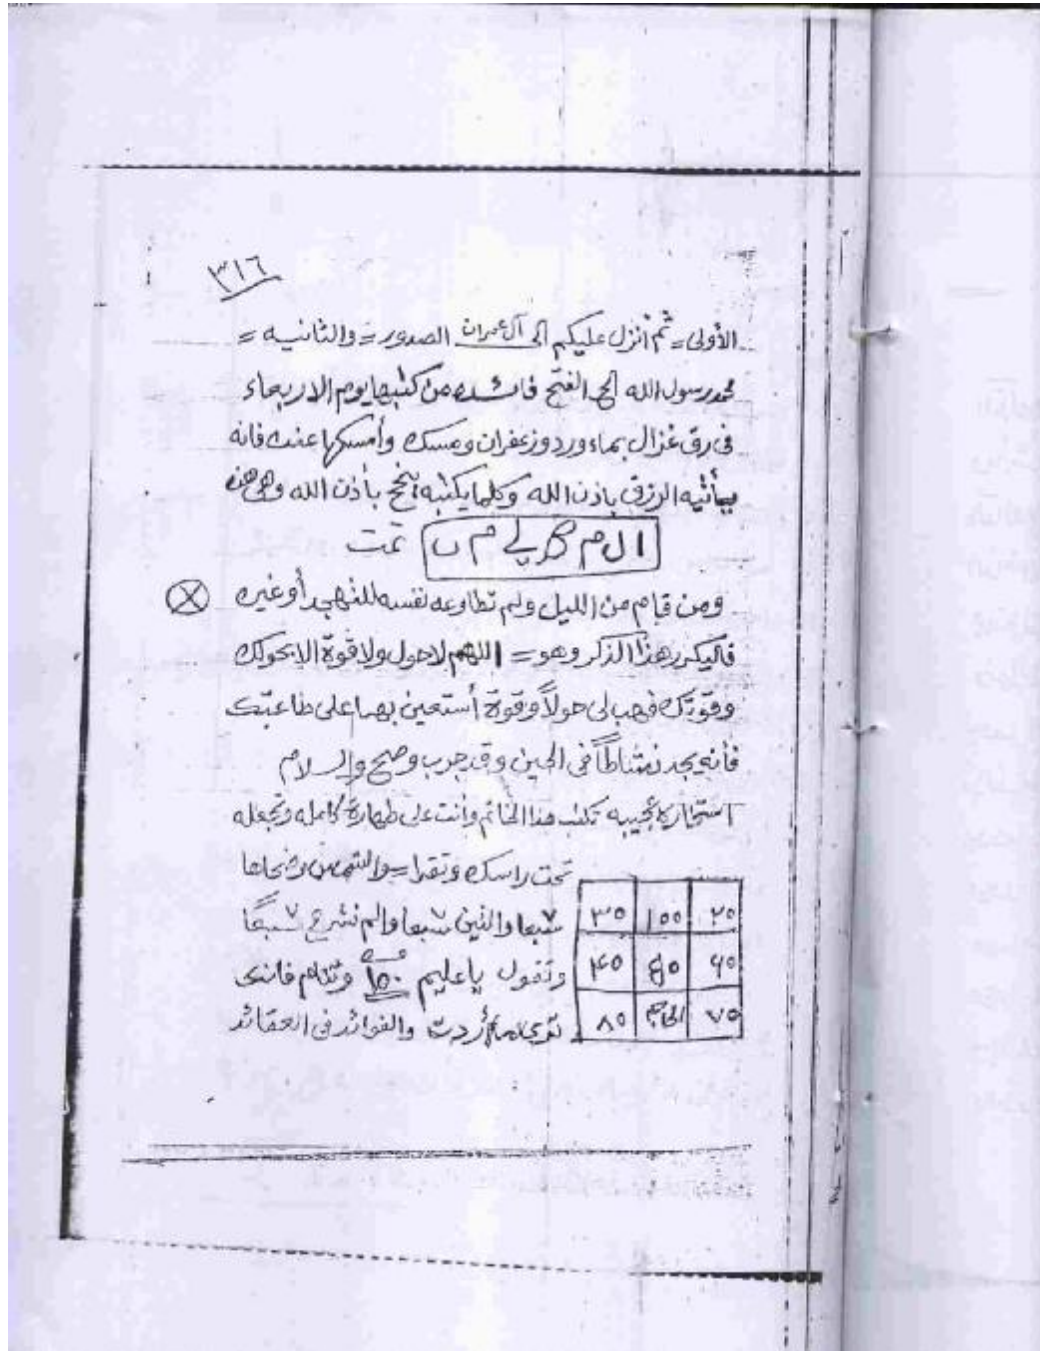 ٣١٦
الأولى = ثم أنزل عليكم الى آل عمران الصدور = والثانيه =
محمد رسول الله الى الفتح فائده من كتبها يوم الاربعاء
فى رق غزال بماء ورد وزعفران ومسك وأمسكها عنده فانه
يأتيه الرزق باذن الله وكلما يكتبه ينجح بأذن الله وهى هذه
ا ل م ن تمت
ومن قام من الليل ولم تطاوعه نفسه للتهجد أو غيره
فاليكرر هذا الذكر وهو = اللهم لا حول ولا قوة الا بحولك
وقوتك فهب لى حولاً وقوة أستعين بهما على طاعتك
فأنه يجد نشاطاً فى الحين وقد جرب وصح والسلام
استخاره عجيبه تكتب هذا الخاتم وأنت على طهارة كامله وتجعله
تحت راسك وتقرا والشمس وضحاها
٧ سبعا والتين ٧ سبعا والم نشرح ٧ سبعًا
وتقول يا عليم ١٥٠ مره وتنام فانك
ترى ما أردت والفوائد فى العقائد
٢٥ ١٥٥ ٣٥
٩٥ ٤٥
٧٥ ٨٥